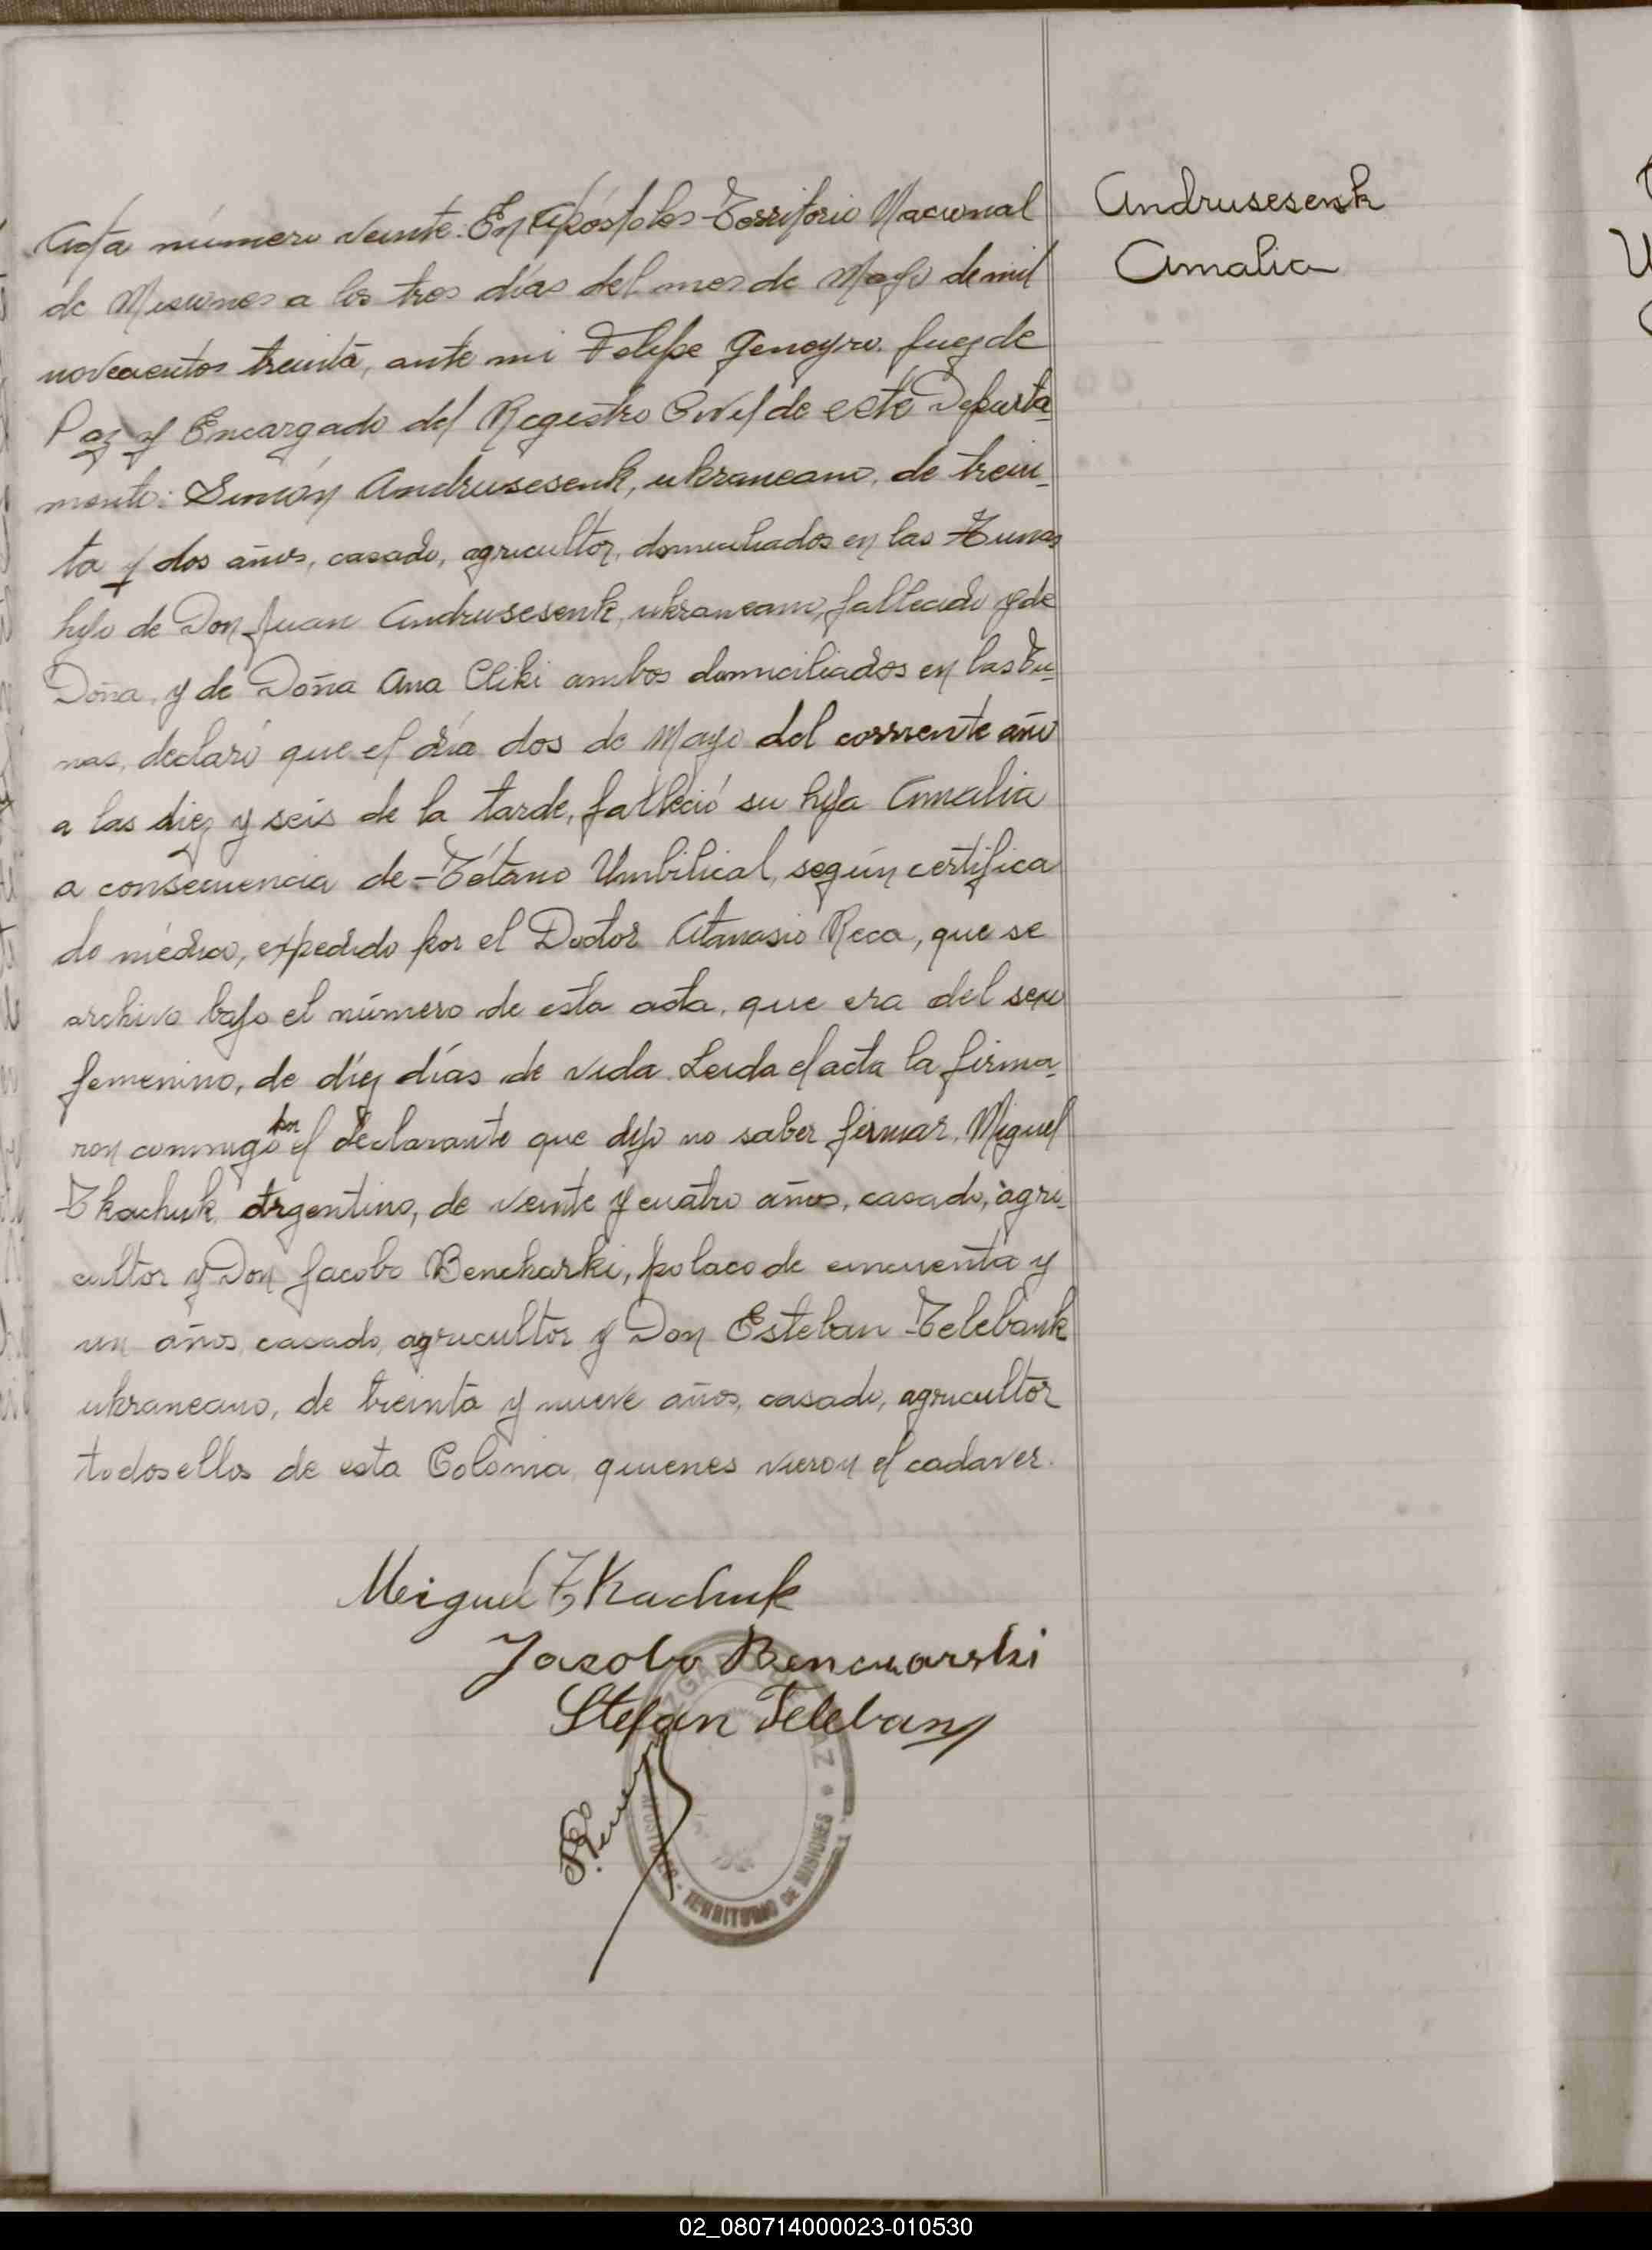 Andrusesenk
Amalia
Acta número veinte. En Apóstoles Territorio Nacional
de Misiones a los tres días del mes de Mayo de mil
novecientos treinta, ante mi Felipe Geneyro. Juez de
Paz y Encargado del Registro Civil de este Departa-
mento: Simón Andrusesenk, ukraneano, de trein-
ta y dos años, casado, agricultor, domiciliados en las Tunas
hijo de Don Juan Andrusesenk, ukraneano, fallecido y de
Doña, y de Doña Ana Cliki ambos domiciliados en las Tu-
nas, declaró que el día dos de Mayo del corriente año
a las diez y seis de la tarde, falleció su hija Amalia
a consecuencia de Tétano Umbilical, según certifica
do médico, expedido por el Doctor Atanasio Reca, que se
archiva bajo el número de esta acta, que era del sexo
femenino, de diez días de vida. Leida el acta la firma-
ron conmigo por el declarante que dijo no saber firmar, Miguel
Tkachuk, argentino, de veinte y cuatro años, casado, agri-
cultor y Don Jacobo Bencharki, polaco de cincuenta y
un años, casado, agricultor y Don Esteban Telebank
ukraneano, de treinta y nueve años, casado, agricultor
todos ellos de esta Colonia, quienes vieron el cadaver.
Miguel TKachuk
Jacobo Bencharski
Stefan Teleban
JUZGADO DE PAZ
APOSTOLES - TERRITORIO DE MISIONES
02_080714000023-010530